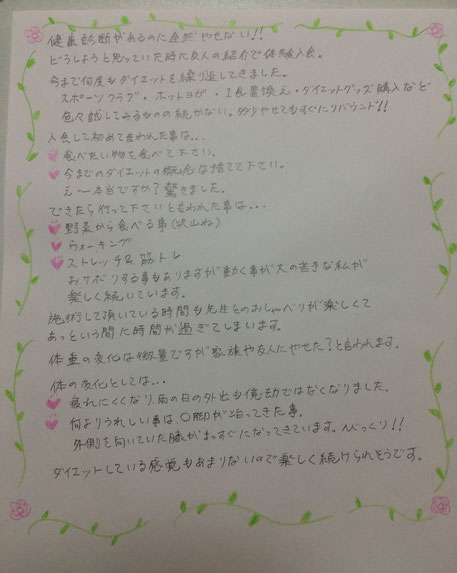 健康診断があるのに全然やせない!!
どうしようと思っていた時に友人の紹介で体験入会。
今まで何度もダイエットを繰り返してきました。
スポーツクラブ・ホットヨガ・1食置換え・ダイエットグッズ購入など
色々試してみるものの続かない。多少やせてもすぐにリバウンド!!
入会して初めて言われた事は…
食べたい物を食べて下さい。
今までのダイエットの概念は捨てて下さい。
え〜本当ですか?驚きました。
できたら行って下さいと言われた事は…
野菜から食べる事(沢山ね)
ウォーキング
ストレッチ&筋トレ
おサボりする事もありますが動く事が大の苦手な私が
楽しく続いています。
施術して頂いている時間も先生とのおしゃべりが楽しくて
あっという間に時間が過ぎてしまいます。
体重の変化は微量ですが家族や友人にやせた?と言われます。
体の変化としては…
疲れにくくなり、雨の日の外出も億劫ではなくなりました。
何よりうれしい事は、O脚が治ってきた事。
外側を向いていた膝がまっすぐになってきています。びっくり!!
ダイエットしている感覚もあまりないので楽しく続けられそうです。